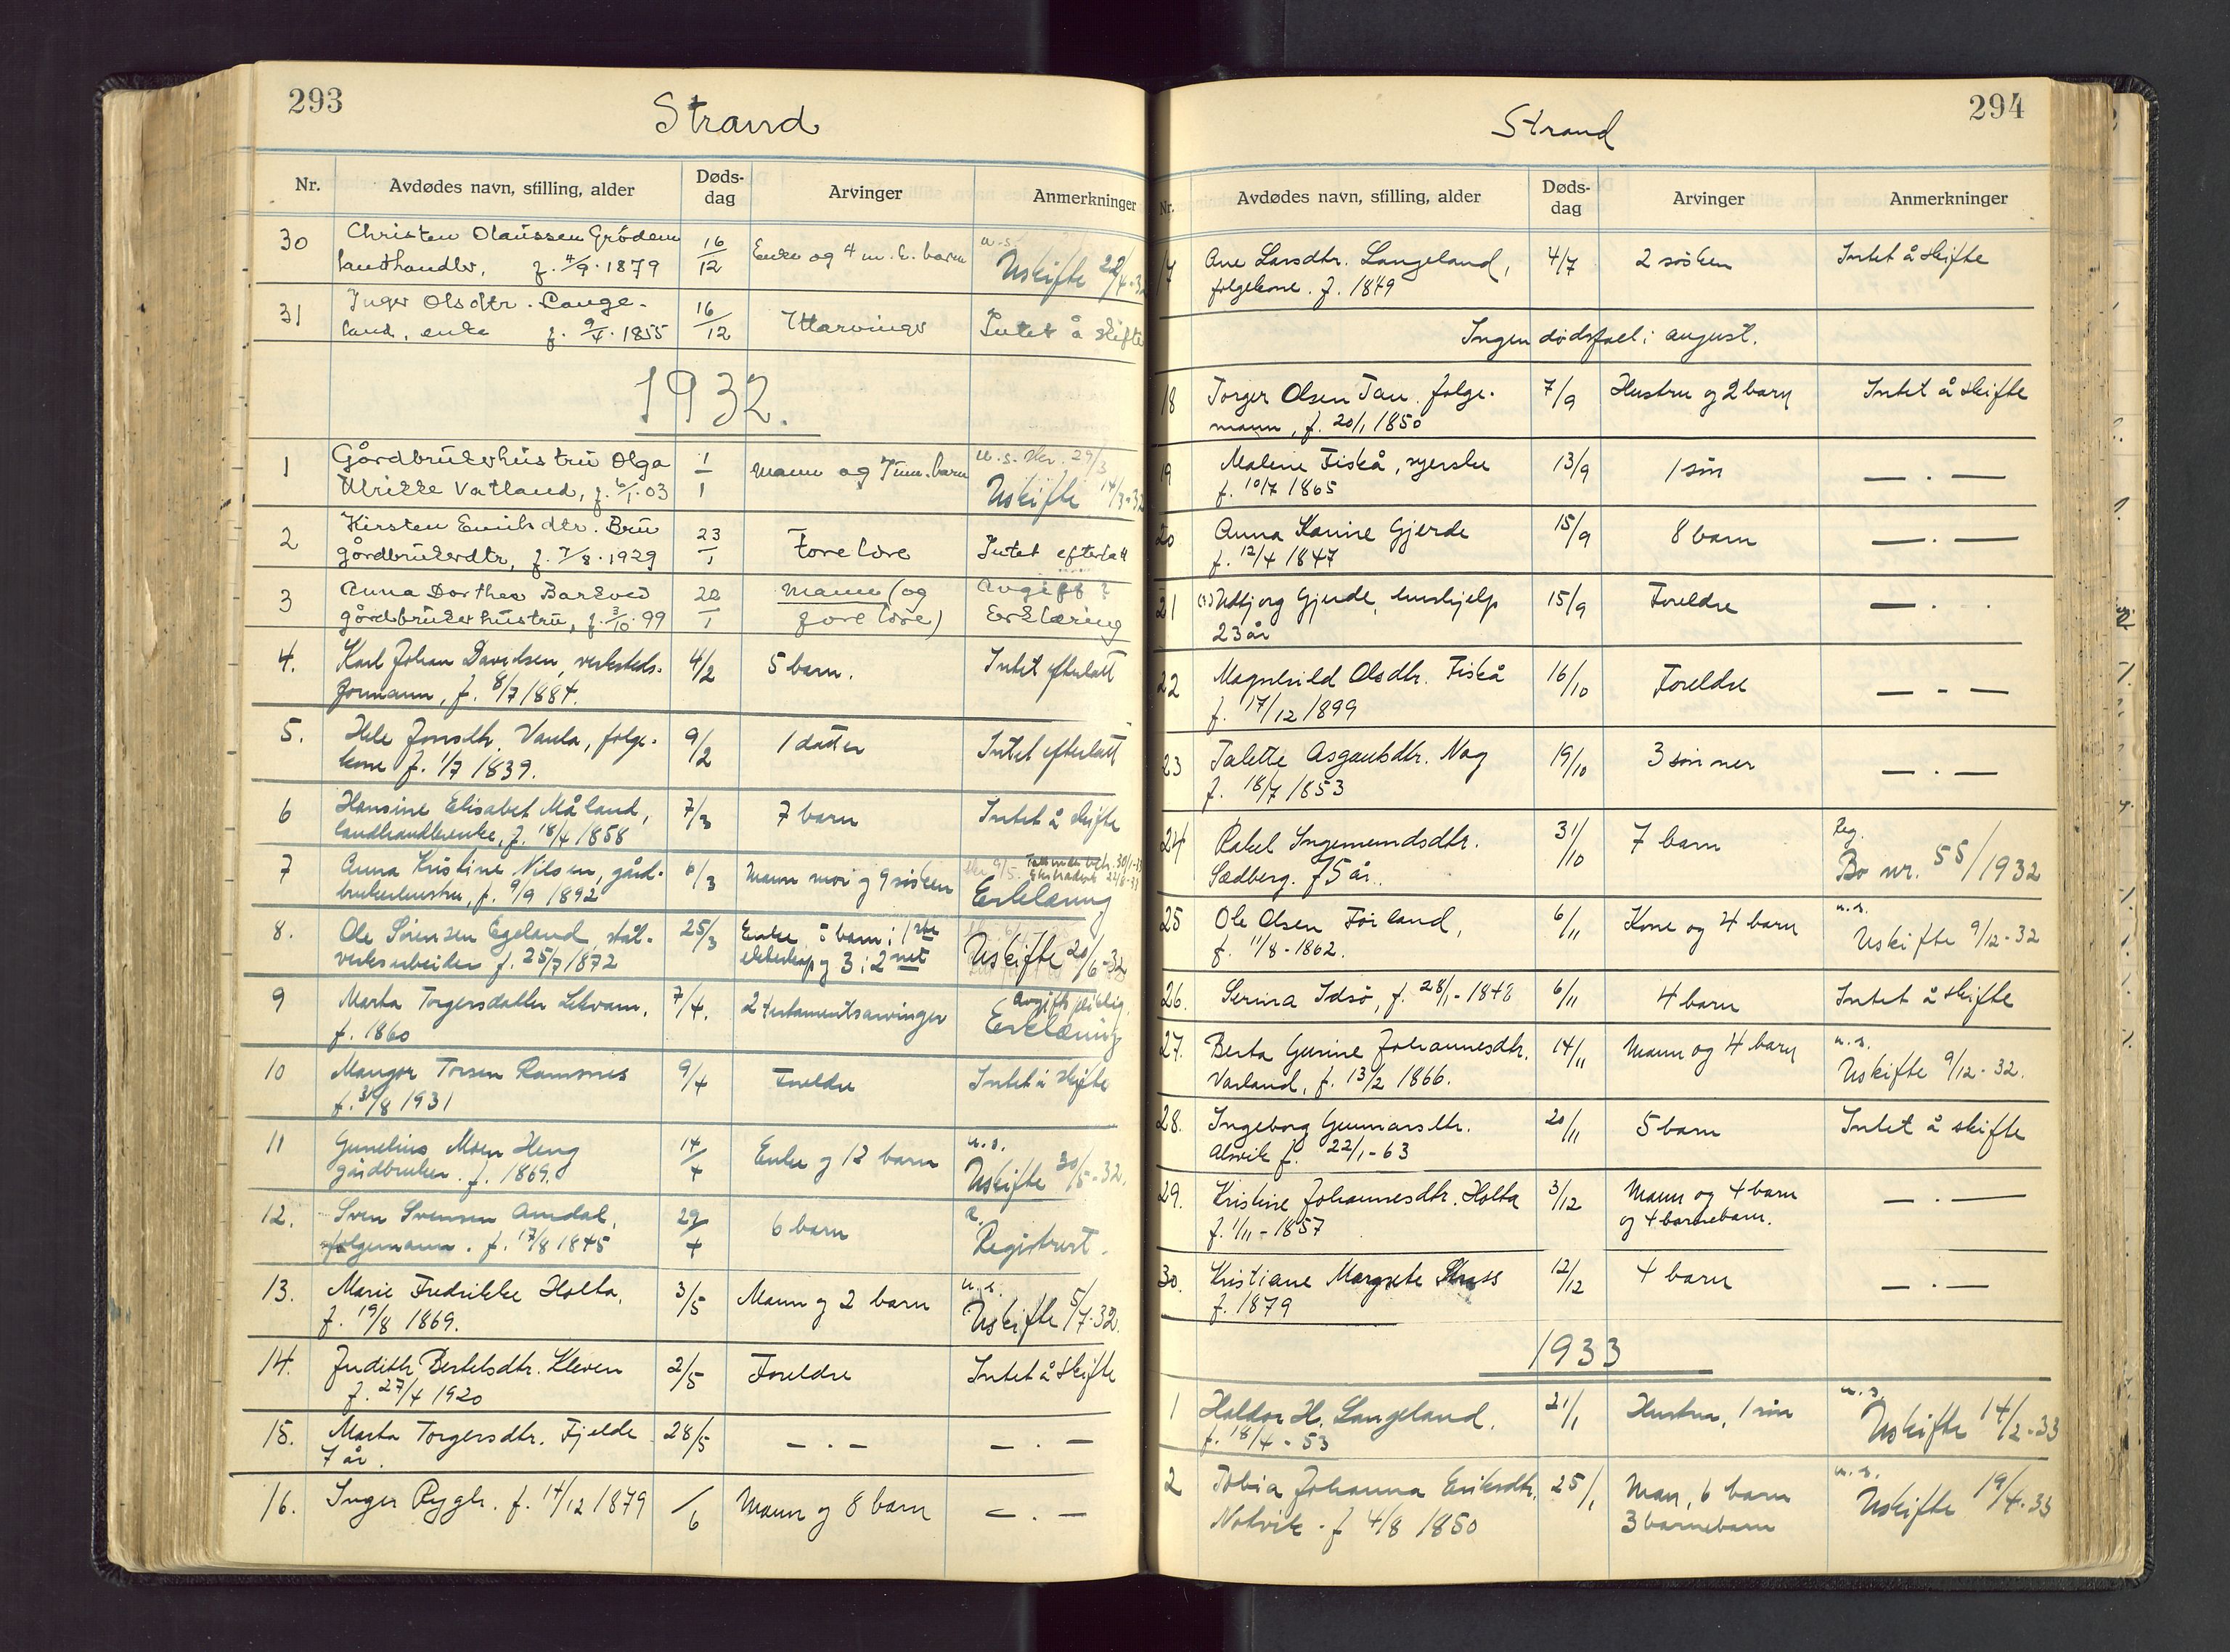 293
Strand
Nr. Avdødes navn, stilling, alder Døds-dag Arvinger Anmerkninger
30 Christen Olaussen Grödem 16/12 Enke og 4 m. b. barn u.s.
landhandler, f. 4/9·1879 Uskifte 22/4-32
31 Inger Olsdtr. Lange- 16/12 Utarvinger Intet å skifte
land, enke f. 9/4·1855
1932.
1 Gårdbrukerhustru Olga 1/1 Mann og 7 um. barn u.s. 29/3
Ulrikke Vatland, f. 6/1·03 Uskifte 14/3-32
2 Kirsten Eriksdtr. Bru 23/1 Foreldre Intet efterlatt
gårdbrukerdtr, f. 7/8·1929
3 Anna Dorthea Barkved 22/1 Mann (og Avgift?
gårdbrukerhustru, f. 3/10·99 foreldre) Erklæring
4. Karl Johan Davidsen, verksteds- 4/2 5 barn. Intet efterlatt
formann, f. 8/7 1884.
5. Hele Jonsdtr. Vaula, folge- 9/2 1 datter Intet efterlatt
kone f. 1/7 1839.
6 Hansine Elisabet Måland, 7/3 7 barn Intet å skifte
landhandlerenke, f. 18/4 1858
7 Anna Kristine Nilsen, gård- 6/3 Mann mor og 9 søsken
brukerhustru, f. 9/9 1892 Erklæring
8. Ole Sörensen Egeland, stål- 25/3 Enke, 5 barn i 1ste
verksarbeider f. 25/7 1872 ekteskap og 3 i 2net Uskifte 20/6-32
9 Marta Torgersdatter Lekvam, 7/4. 2 testamentsarvinger Avgiftspliktig
f. 1860 Erklæring
10 Mangor Torsen Ramsnes 9/4 Foreldre Intet å skifte
f. 31/8 1931
11 Gunelius Moen Heng 14/4 Enke og 12 barn u.s.
gårdbruker. f. 1869. Uskifte 30/5-32.
12. Sven Svensen Amdal, 29/4 6 barn R.
folgemann. f. 17/8 1845 Registrert.
13. Marie Fredrikke Holta, 3/5 Mann og 2 barn u.s.
f. 19/8 1869. Uskifte 5/7-32.
14. Judith Bertelsdtr. Kleven 2/5 Foreldre Intet å skifte
f. 27/4 1920
15. Marta Torgersdtr. Fjelde 28/5 — . — — . —
7 år.
16. Inger Rygh. f. 14/12 1879 /6 Mann og 8 barn — . —
294
Strand
Nr. Avdødes navn, stilling, alder Døds-dag Arvinger Anmerkninger
17 Ane Larsdtr. Langeland, 4/7 2 søsken Intet å skifte
folgekone. f. 1849
Ingen dødsfall i august.
18 Torger Olsen Tau. folge- 7/9 Hustru og 2 barn Intet å skifte
mann, f. 20/1 1850
19 Malene Fiskå, syerske 13/9 1 sön — . —
f. 10/7 1865
20 Anna Karine Gjerde 15/9 8 barn — . —
f. 12/4 1847
21 Gjerde, hushjelp 15/9 Foreldre — . .
23 år
22 Magnhild Olsdtr. Fiskå 16/10 Foreldre — - —
f. 17/12 1899
23 Talette Asgautsdtr. Nag 19/10 3 sönner — . —
f. 18/7 1853
24 Rakel Ingemundsdtr. 31/10 7 barn Reg.
Sædberg. 75 år. Bo nr. 55/1932
25 Ole Olsen Förland, 6/11 Kone og 4 barn u.s.
f. 11/8 - 1862. Uskifte 9/12-32
26. Serina Idsö, f. 28/1 - 1848 6/11 4 barn Intet å skifte
27. Berta Gurine Johannesdtr. 14/11 Mann og 4 barn u.s.
Varland, f. 13/2 1866. Uskifte 9/12-32.
28. Ingeborg Gunnarsdtr. 20/11 5 barn Intet å skifte
Alsvik f. 22/1 - 63
29. Kristine Johannesdtr. Holta 3/12 Mann og 4 barn — . —
f. 1/11 - 1857 og 4 barnebarn.
30. Kristiane Margrete 12/12 4 barn — . —
f. 1879
1933
1 Haldor H. Langeland. 21/1 Hustru, 1 sön u.s.
f. 18/4 - 53 Uskifte 14/2-33
2 Tobia Johanna Eriksdtr. 25/1 Man, 6 barn u.s.
Notvik. f 4/8 1850 3 barnebarn Uskifte 19/4-33